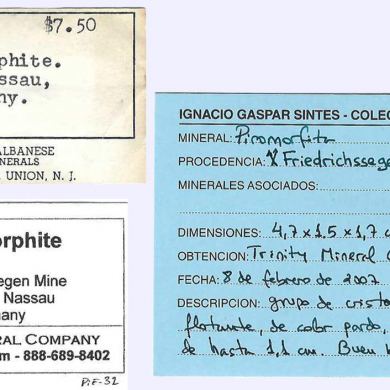 $7.50
phite.
assau,
ny.
ALBANESE
NERALS
UNION, N. J.
orphite
egen Mine
Nassau
nany
RAL COMPANY
m - 888-689-8402
P.F-32
IGNACIO GASPAR SINTES - COLEC
MINERAL: Piromorfita
PROCEDENCIA: Friedrichssege
MINERALES ASOCIADOS:
DIMENSIONES: 4,7 x 1.5 x 1,7 c
OBTENCION: Trinity Mineral
FECHA: 8 de febrero de 2007
DESCRIPCION: grupo de crist
flotante, de color pardo,
de hasta 1,1 cm. Buen